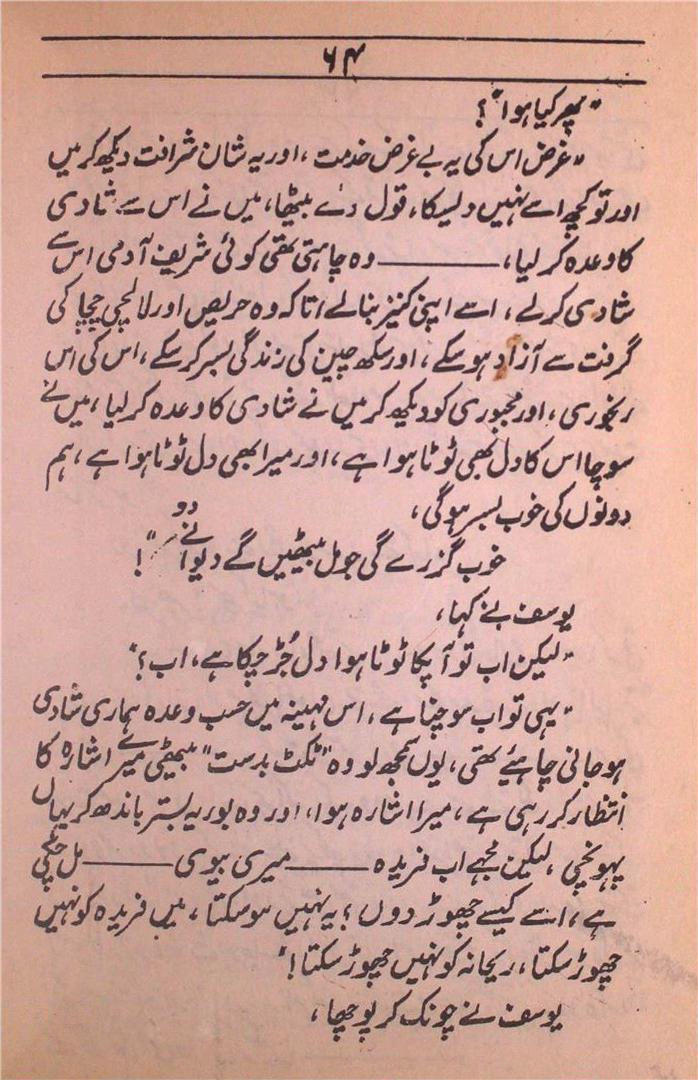 ۶۴
"پھر کیا ہوا"؟
"غرض اس کی یہ بے غرض خدمت، اور یہ شان شرافت دیکھ کر میں
اور تو کچھ اسے نہیں دلیسکا، قول دے بیٹھا، میں نے اس سے شادی
کا وعدہ کر لیا، ——— وہ چاہتی تھی کوئی شریف آدمی اس سے
شادی کر لے، اسے اپنی کنیز بنالے اتا کہ وہ حریص اور لالچی چچا کی
گرفت سے آزاد ہو سکے، اور سکھ چین کی زندگی بسر کر سکے، اس کی اس
رنجوری، اور مجبوری کو دیکھ کر میں نے شادی کا وعدہ کر لیا، میں نے
سوچا اس کا دل بھی ٹوٹا ہوا ہے، اور میرا بھی دل ٹوٹا ہوا ہے، ہم
دونوں کی خوب بسر ہوگی،
خوب گزرے گی جو مل بیٹھیں گے دیوانے دو"!
یوسف نے کہا،
"لیکن اب تو آپکا ٹوٹا ہوا دل جُڑ چکا ہے، اب؟"
"یہی تو اب سوچنا ہے، اس مہینہ میں حسب وعدہ ہماری شادی
ہو جانی چاہیئے تھی، یوں سمجھ لو وہ "ٹکٹ بدست" بیٹھی میرے اشارہ کا
انتظار کر رہی ہے، میرا اشارہ ہوا، اور وہ بوریہ بستر باندھ کر یہاں
پہونچی، لیکن مجھے اب فریدہ ——— میری بیوی ——— مل چکی
ہے، اسے کیسے چھوڑ دوں؟ یہ نہیں ہو سکتا، میں فریدہ کو نہیں
چھوڑ سکتا، ریحانہ کو نہیں چھوڑ سکتا!"
یوسف نے چونک کر پوچھا،